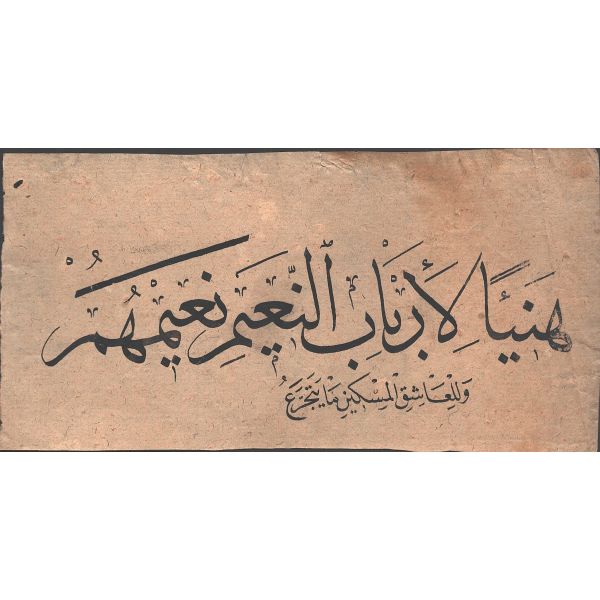 هَنيئًا لِأَرْبَابِ النَّعِيمِ نَعِيمُهُمْ
وَلِلْعَاشِقِ الْمِسْكِينِ مَا يَتَجَرَّعُ